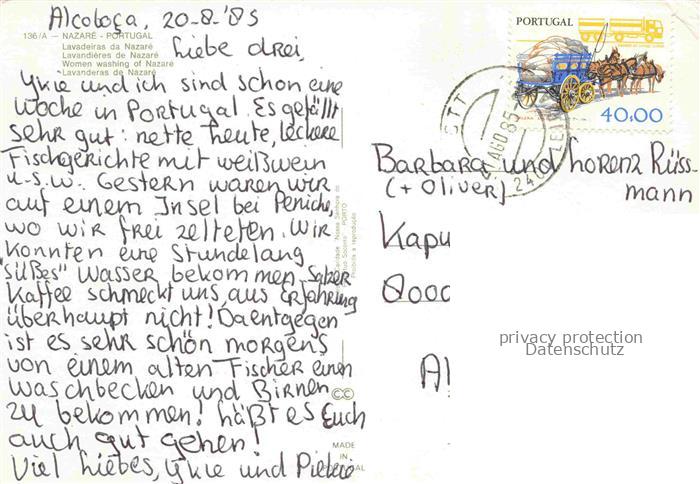 Alcobaça, 20-8-'85
136/A — NAZARÉ - PORTUGAL
Lavadeiras da Nazaré
Lavandières de Nazaré
Women washing of Nazaré
Lavanderas de Nazaré
Liebe drei,
Ykie und ich sind schon eine
woche in Portugal. Es gefällt
sehr gut: nette Leute, Leckere
Fischgerichte mit weißwein
u.s.w. Gestern waren wir
auf einem Insel bei Peniche,
wo wir frei zelteten. Wir
konnten eine Stundelang
"süßes" wasser bekommen. Salzer
Kaffee schmeckt uns, aus Erfahrung
überhaupt nicht! Daentgegen
ist es sehr schön morgens
von einem alten Fischer einen
waschbecken und Birnen
zu bekommen! Läßt es Euch
auch gut gehen!
Viel Liebes, Ykie und
PORTO
Proibida a reprodução
MADE
IN
PORTUGAL
PORTUGAL
40,00
CTT
AGO 85
Barbara und Lorenz Rüss-
(+ Oliver) mann
Kapu
privacy protection
Datenschutz